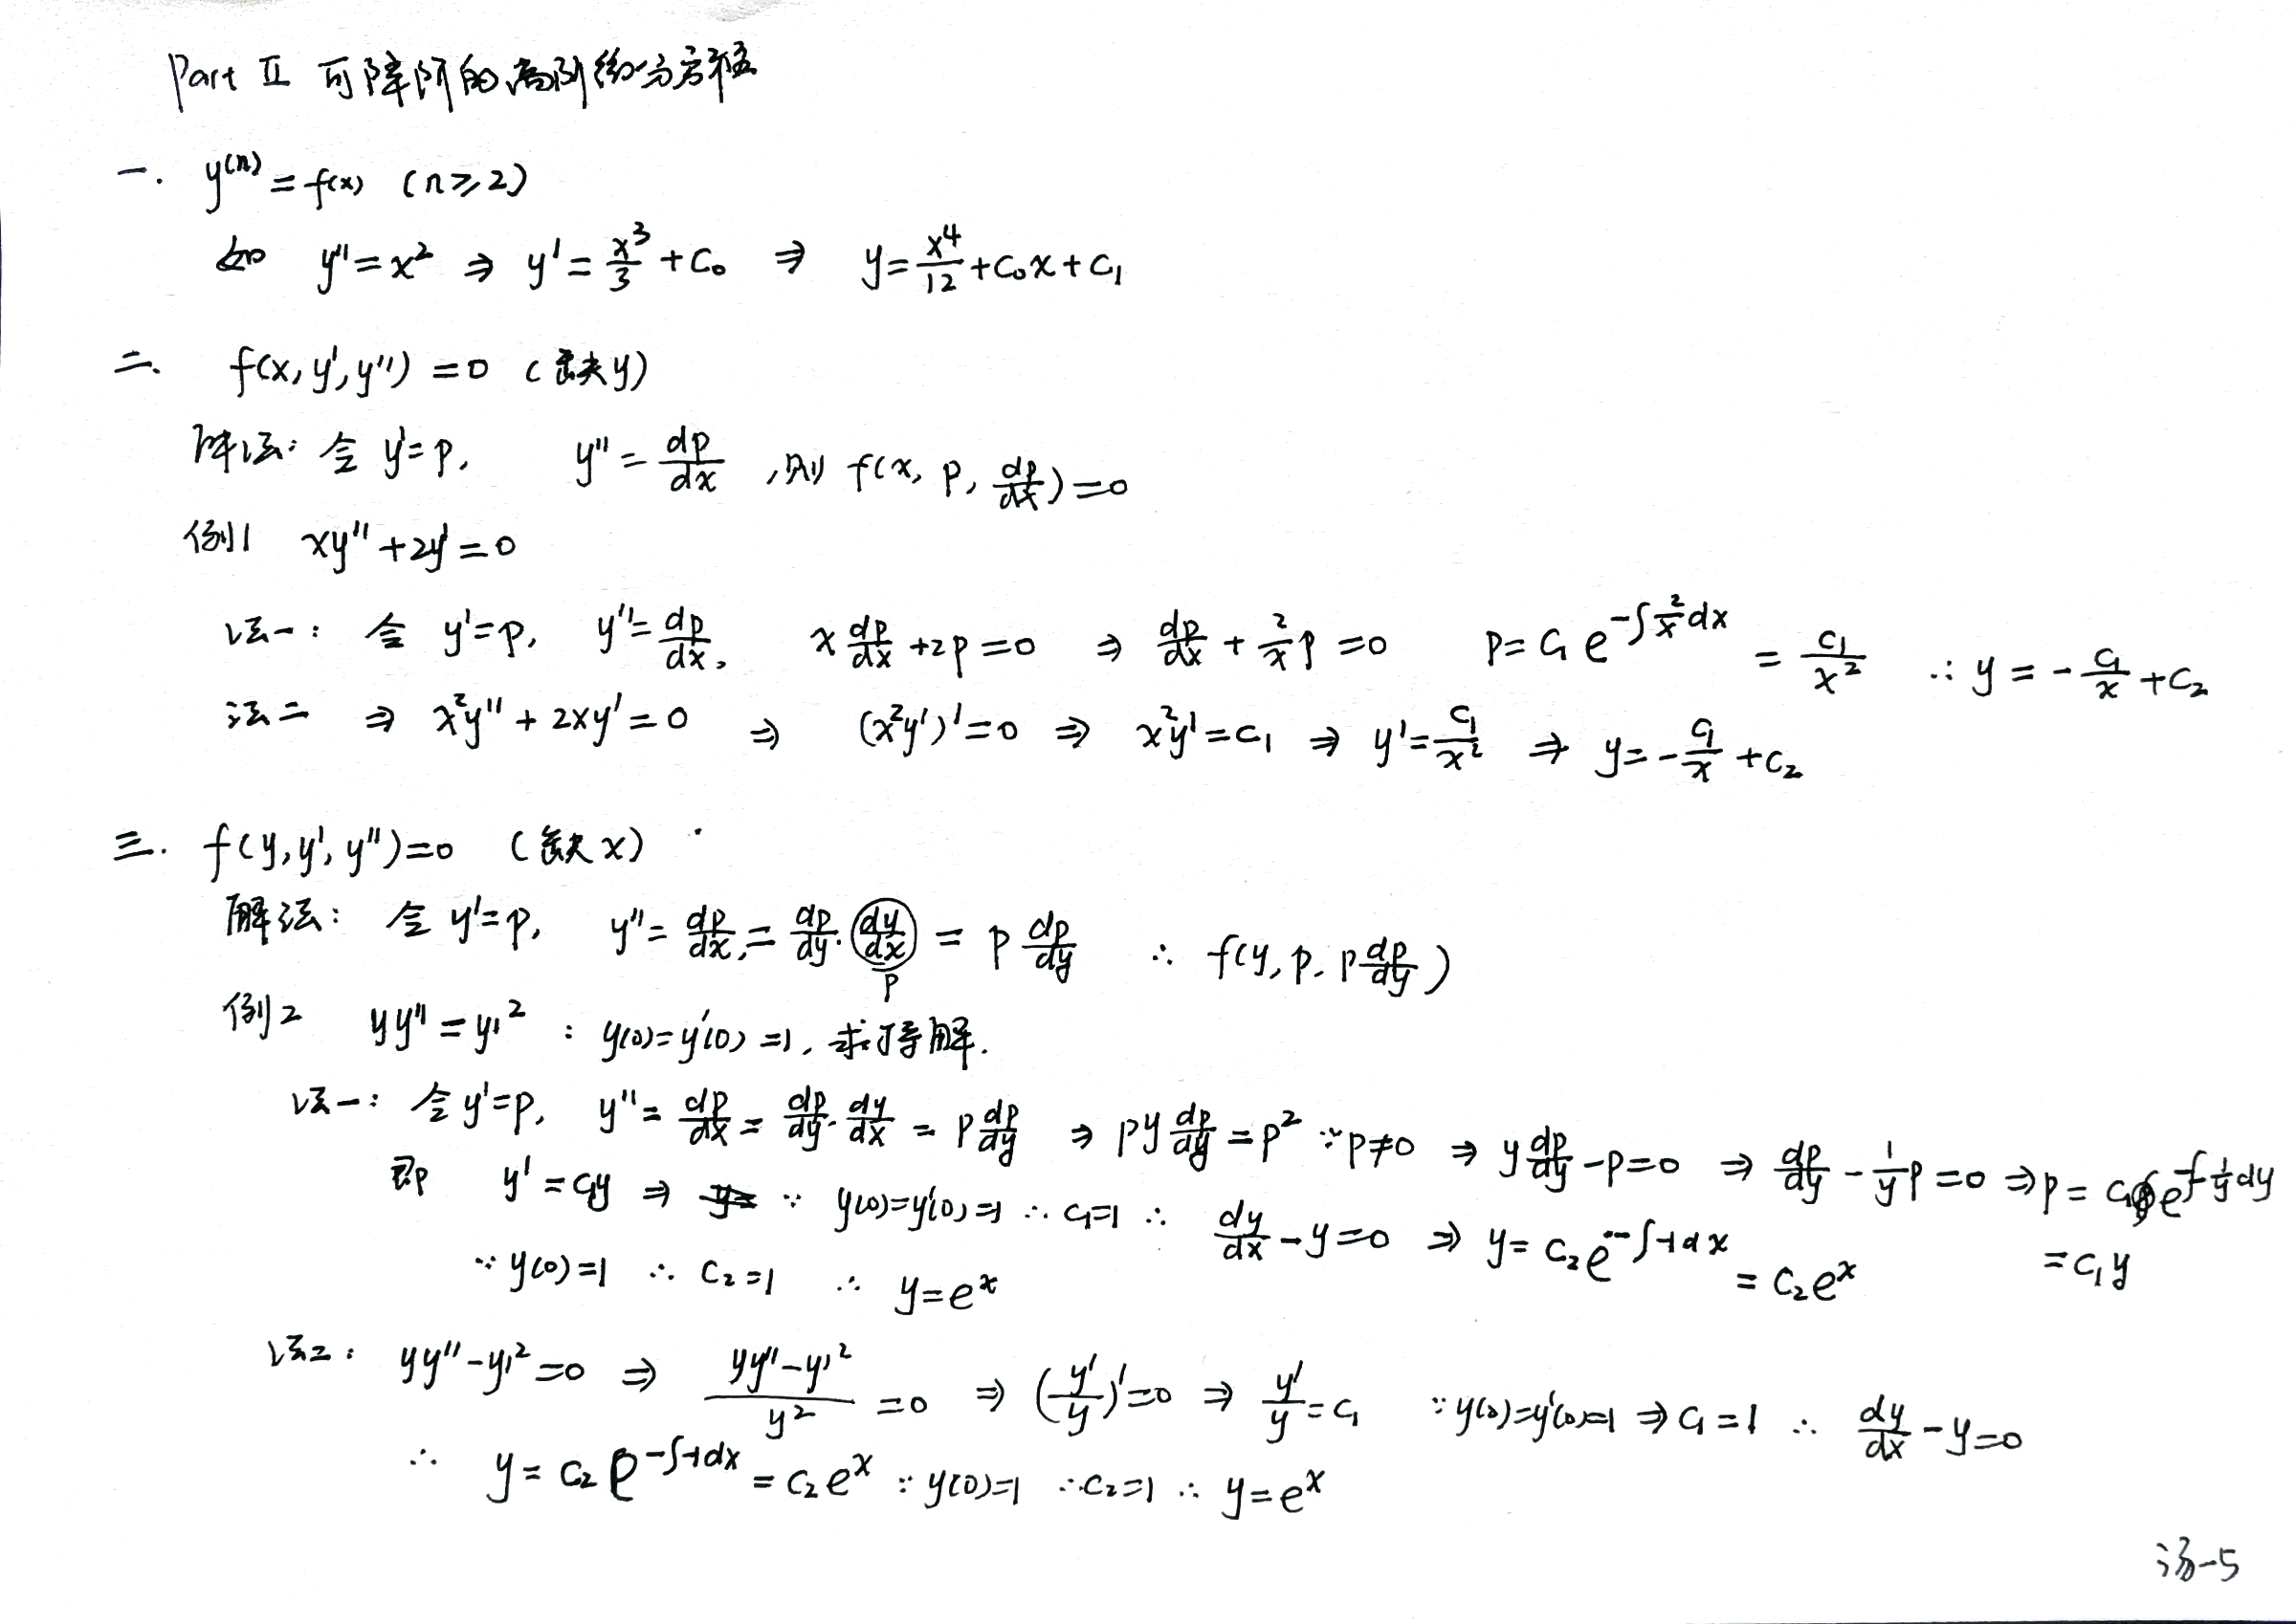 Part Ⅱ 可降阶的高阶微分方程
一. y⁽ⁿ⁾ = f(x) (n≥2)
如 y'' = x² ⇒ y' = x³/3 + C₀ ⇒ y = x⁴/12 + C₀x + C₁
二. f(x, y', y'') = 0 (缺y)
解法: 令 y' = p, y'' = dp/dx , 则 f(x, p, dp/dx) = 0
例1 xy'' + 2y' = 0
法一: 令 y' = p, y'' = dp/dx, x dp/dx + 2p = 0 ⇒ dp/dx + (2/x)p = 0 p = C₁e^(-∫(2/x)dx) = C₁/x² ∴ y = -C₁/x + C₂
法二 ⇒ x²y'' + 2xy' = 0 ⇒ (x²y')' = 0 ⇒ x²y' = C₁ ⇒ y' = C₁/x² ⇒ y = -C₁/x + C₂
三. f(y, y', y'') = 0 (缺x)
解法: 令 y' = p, y'' = dp/dx = dp/dy · dy/dx = p dp/dy ∴ f(y, p, p dp/dy)
p
例2 yy'' = y'² : y(0) = y'(0) = 1, 求特解.
法一: 令 y' = p, y'' = dp/dx = dp/dy · dy/dx = p dp/dy ⇒ py dp/dy = p² ∵ p ≠ 0 ⇒ y dp/dy - p = 0 ⇒ dp/dy - (1/y)p = 0 ⇒ p = C₁e^(-∫-(1/y)dy)
= C₁y
即 y' = C₁y ⇒ ∵ y(0) = y'(0) = 1 ∴ C₁ = 1 ∴ dy/dx - y = 0 ⇒ y = C₂e^(-∫-1dx) = C₂eˣ
∵ y(0) = 1 ∴ C₂ = 1 ∴ y = eˣ
法二: yy'' - y'² = 0 ⇒ (yy'' - y'²)/y² = 0 ⇒ (y'/y)' = 0 ⇒ y'/y = C₁ ∵ y(0) = y'(0) = 1 ⇒ C₁ = 1 ∴ dy/dx - y = 0
∴ y = C₂e^(-∫-1dx) = C₂eˣ ∵ y(0) = 1 ∴ C₂ = 1 ∴ y = eˣ
汤-5